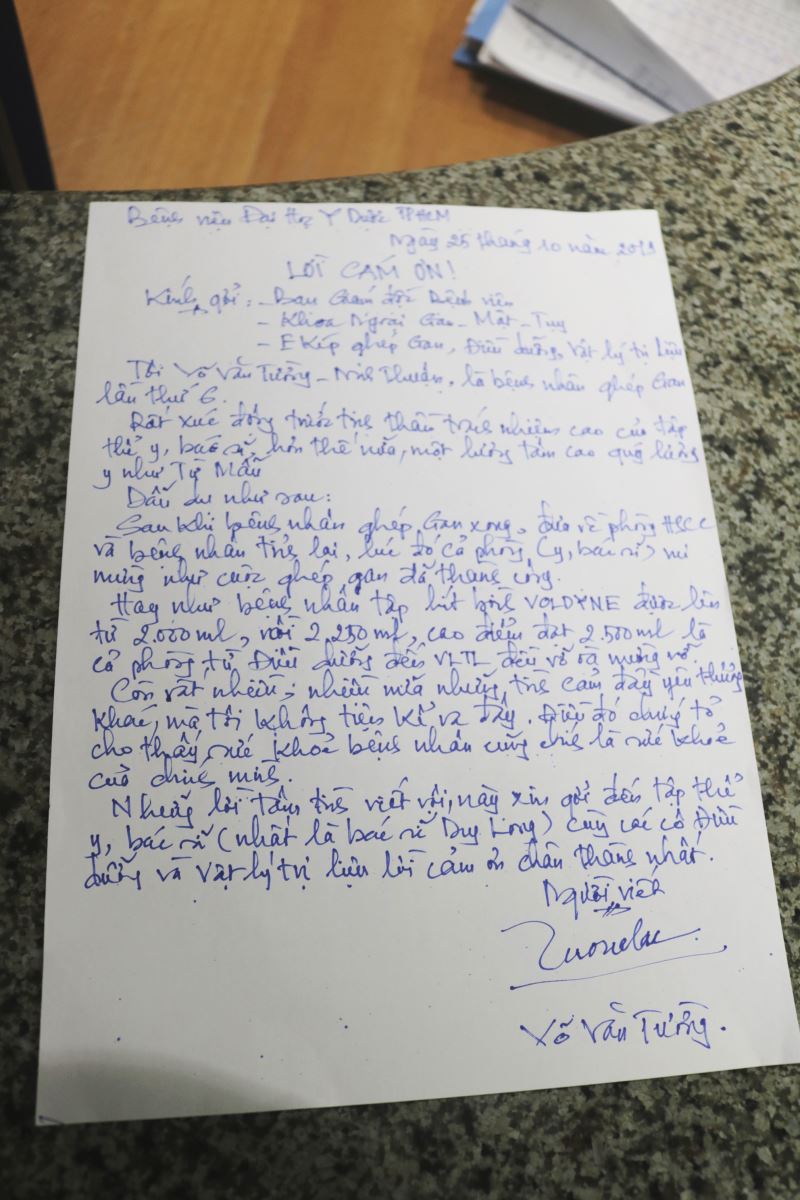 Bệnh viện Đại Học Y Dược TPHCM
Ngày 25 tháng 10 năm 2019
LỜI CÁM ƠN!
Kính gửi: - Ban Giám đốc Bệnh viện
- Khoa Ngoại Gan - Mật - Tụy
- E Kíp ghép Gan, Điều dưỡng, Vật lý trị liệu
Tôi Võ Văn Tường - Ninh Thuận, là bệnh nhân ghép Gan
lần thứ 6.
Rất xúc động trước tinh thần trách nhiệm cao của tập
thể y, bác sĩ hơn thế nữa, một lương tâm cao quý lương
y như Từ Mẫu
Dẫu du như sau:
Sau khi bệnh nhân ghép Gan xong, đưa về phòng HSCC
và bệnh nhân tỉnh lại, lúc đó cả phòng (y, bác sĩ) vui
mừng như cuộc ghép gan đã thành công.
Hay như bệnh nhân tập hít bóng VOLDYNE được lên
từ 2.000ml, rồi 2.250ml, cao điểm đạt 2.500ml là
cả phòng, từ Điều dưỡng đến VLTL đều vỡ oà mừng rỡ.
Còn rất nhiều; nhiều nữa những tình cảm đầy yêu thương
khác, mà tôi không tiện kể ra đây. Điều đó chứng tỏ
cho thấy sức khoẻ bệnh nhân cũng chính là sức khoẻ
của chính mình.
Những lời tâm tình viết vội này xin gởi đến tập thể
y, bác sĩ (nhất là bác sĩ Duy Long) cùng các cô Điều
dưỡng và vật lý trị liệu lời cảm ơn chân thành nhất.
Người viết
Võ Văn Tường.